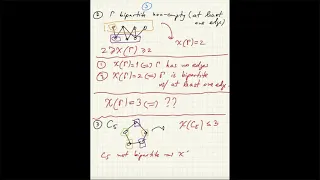 ③
② Γ bipartite non-empty (at least
one edge)
χ(Γ)=2
2 ≥ χ(Γ) ≥ 2
① χ(Γ)=1 ⟺ Γ has no edges
② χ(Γ)=2 ⟺ Γ is bipartite
w/ at least one edge
χ(Γ)=3 ⟺ ??
③ C₅
χ(C₅) ≤ 3
C₅ not bipartite ⟹ χ